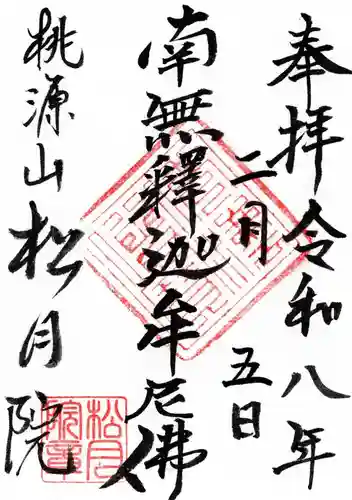 奉拝令和八年
二月
五日
南無釋迦牟尼佛
桃源山
松月院
松月院章